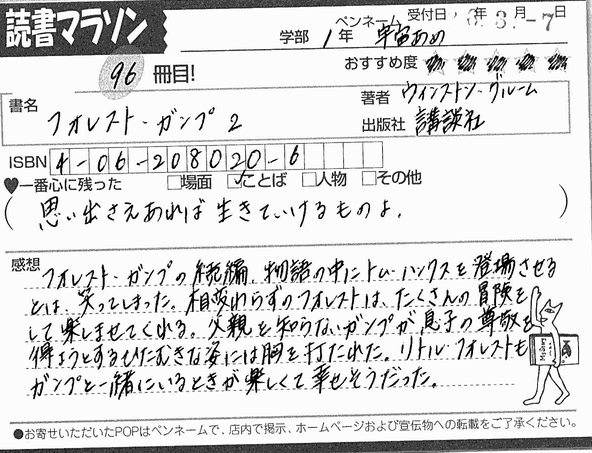 読書マラソン
学部 1年 ペンネーム 宇宙あめ 受付日 年 月 -7日
96 冊目!
おすすめ度
書名 フォレスト・ガンプ2
著者 ウィンストン・グルーム
出版社 講談社
ISBN 4-06-208020-6
♥一番心に残った □場面 ☑ことば □人物 □その他
(思い出さえあれば生きていけるものよ。)
感想
フォレスト・ガンプの続編。物語の中にトム・ハンクスを登場させる
とは、笑ってしまった。相変わらずのフォレストは、たくさんの冒険を
して楽しませてくれる。父親を知らないガンプが息子の尊敬を
得ようとするひたむきな姿には胸を打たれた。リトル・フォレストも
ガンプと一緒にいるときが楽しくて幸せそうだった。
●お寄せいただいたPOPはペンネームで、店内で掲示、ホームページおよび宣伝物への転載をご了承ください。